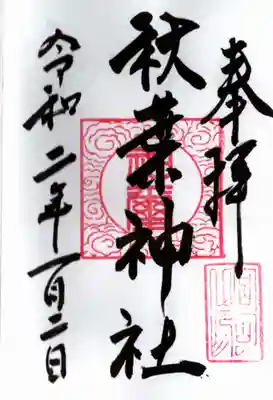 奉拝
秋葉神社
令和二年一月二日